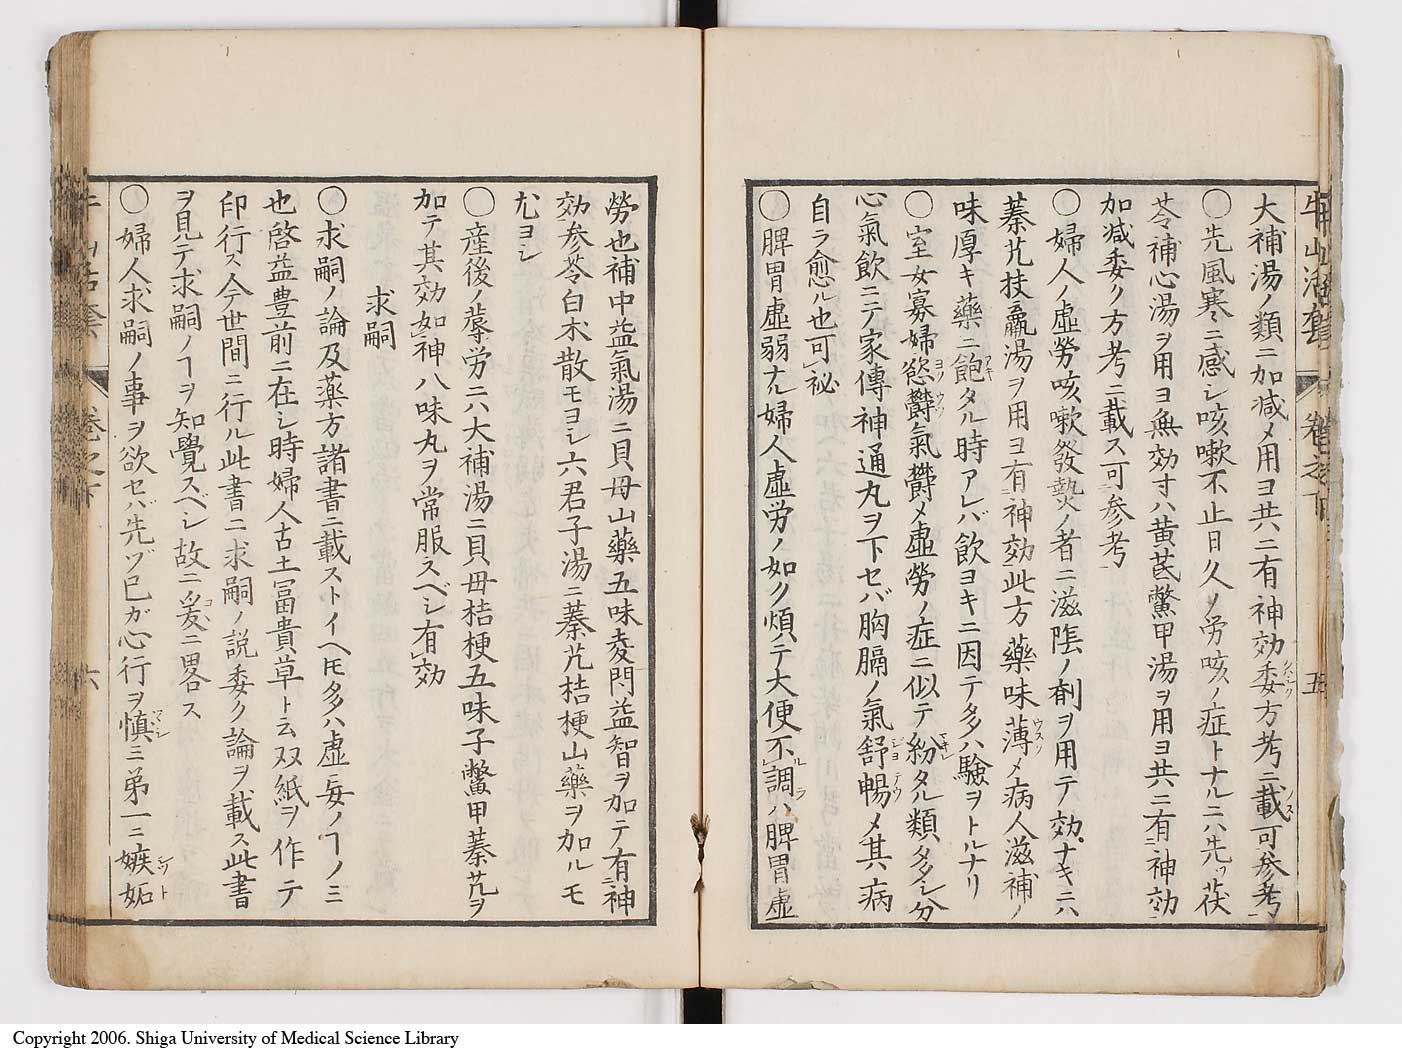 大補湯ノ類ニ加減メ用ヨ共ニ有神効委方考ニ載可参考
〇先風寒ニ感シ咳嗽不止日久ノ労咳ノ症トナルニハ先ヅ茯
苓補心湯ヲ用ヨ無効オハ黄芪鱉甲湯ヲ用ヨ共ニ有神効
加減委ク方考ニ載ス可参考
〇婦人ノ虚勞咳嗽發熱ノ者ニ滋陰ノ剤ヲ用テ効ナキニハ
蓁艽扶羸湯ヲ用ヨ有神効此方藥味薄メ病人滋補ノ
味厚キ藥ニ飽タル時アレバ飲ヨキニ因テ多ハ驗ヲトルナリ
〇室女寡婦慾欝氣欝メ虚勞ノ症ニ似テ紛タル類多シ分
心氣飲ニテ家傳神通丸ヲ下セバ胸膈ノ氣舒暢メ其病
自ラ愈ル也可祕
〇脾胃虚弱ナル婦人虚労ノ如ク煩テ大便不調ハ脾胃虚
勞也補中益氣湯ニ貝母山藥五味麦門益智ヲ加テ有神
効参苓白朮散モヨシ六君子湯ニ蓁艽桔梗山藥ヲ加ルモ
尤ヨシ
〇産後ノ蓐労ニハ大補湯ニ貝母桔梗五味子鱉甲蓁艽ヲ
加テ其効如神八味丸ヲ常服スベシ有効
求嗣
〇求嗣ノ論及薬方諸書ニ載ストイヘ𪜈多ハ虚妄ノヿノミ
也啓益豊前ニ在シ時婦人古土冨貴草ト云双紙ヲ作テ
印行ス今世間ニ行ル此書ニ求嗣ノ説委ク論ヲ載ス此書
ヲ見テ求嗣ノヿヲ知覺スベシ故ニ爰ニ畧ス
〇婦人求嗣ノ事ヲ欲セバ先ヅ已ガ心行ヲ慎ミ第一ニ嫉妬
牛山活套
巻之下
五
巻之下
六
Copyright 2006. Shiga University of Medical Science Library